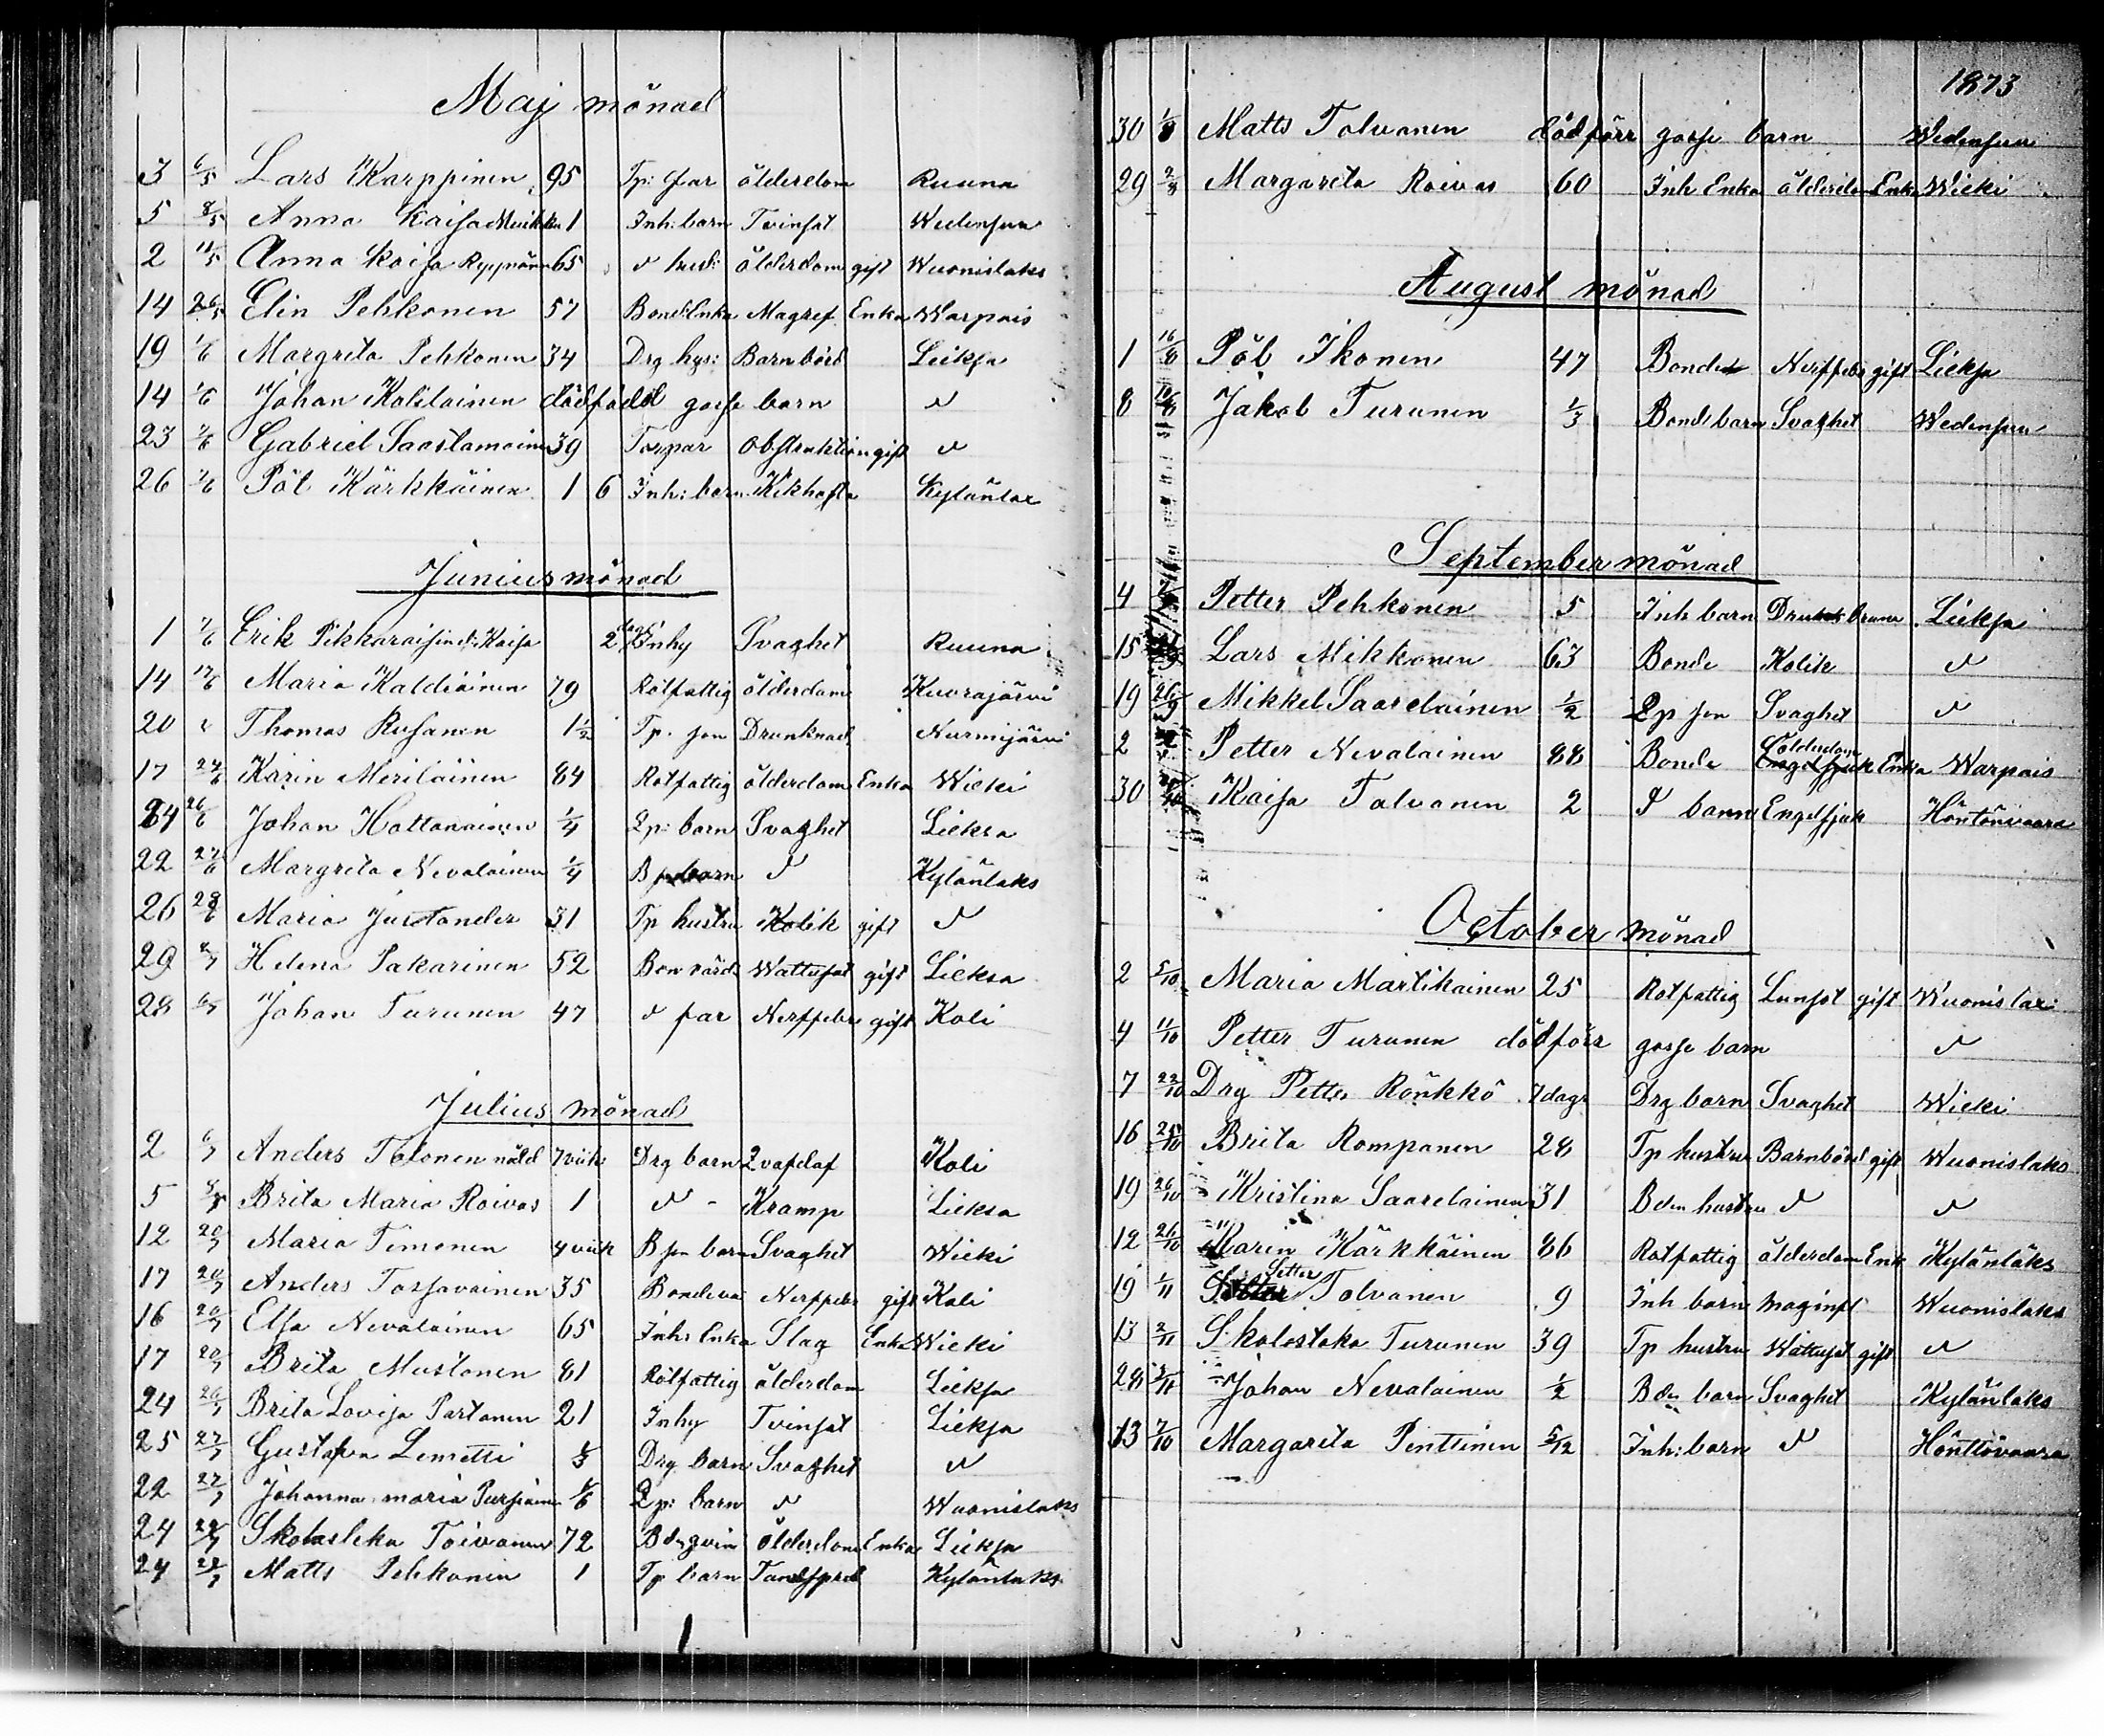 Maj månad
3 6/5 Lars Karppinen 95 Tp: far ålderdom Ruuna
5 8/5 Anna Kaisa 1 Inh: barn Tvinsot Wedensuu
2 11/5 Anna Kaisa 65 d ålderdom gift Wuonislaks
14 26/5 Elin Pehkonen 57 Bond:Enka Enka Warpais
19 1/6 Margreta Pehkonen 34 Drg hus: Barnbörd Lieksa
14 1/6 Johan Kolilainen dödfödd gosse barn d
23 2/6 Gabriel Saastamoinen 39 Torpar obstruktion gift d
26 2/6 Pål Kärkkäinen 1 6 Inh: barn Kikhosta Kylänlax
Junius månad
1 7/6 Erik Kaisa 2 dagar Inhy Svaghet Ruuna
14 17/6 Maria 79 Rotfattig ålderdom Kuorajärvi
20 " Thomas Rusanen 1 1/2 Tp. son Drunknad Nurmijärvi
17 24/6 Karin Meriläinen 84 Rotfattig ålderdom Enka Wieki
24 26/6 Johan Hattanainen 1/4 Lp: barn Svaghet Lieksa
22 27/6 Margreta Nevalainen 1/4 barn d Kylänlaks
26 28/6 Maria 31 Tp hustru Kolik gift d
29 Helena Sakarinen 52 Bon Wattusot gift Lieksa
28 6/7 Johan Turunen 47 d far Nerffeber gift Koli
Julius månad
2 6/7 Anders Tolonen 7 vik Drg barn Koli
5 Brita Maria Roivas 1 d - Kramp Lieksa
12 20/7 Maria Timonen 4 vik B son barn Svaghet Wieki
17 20/7 Anders Torsavainen 35 Nerffeber gift Koli
16 20/7 Elsa Nevalainen 65 Inhs Enka Slag Enka Wieki
17 20/7 Brita Mustonen 81 Rotfattig ålderdom Lieksa
24 26/7 Brita Lovisa Partanen 21 Inhy Tvinsot Lieksa
25 27/7 Gustafva Lemetti 1/3 Drg barn Svaghet d
22 27/7 Johanna maria 1/6 Lp: barn d Wuonislaks
24 Skolastika Toivanen 72 ålderdom Enka Lieksa
24 27/7 Matts Pehkonen 1 Tp barn Kylänlaks
1873
30 1/8 Matts Tolvanen dödförr gosse barn Wedensuu
29 2/8 Margareta Roivas 60 Inh Enka ålderdom Enka Wieki
August månad
1 16/8 Pål Ikonen 47 Bonde Nerffeber gift Lieksa
8 16/8 Jakob Turunen 1/3 Bond barn Svaghet Wedensuu
September månad
4 Petter Pehkonen 5 Inh barn Lieksa
15 Lars Mikkonen 63 Bonde Kolik d
19 26/9 Mikkel Saarelainen 1/2 Lp son Svaghet d
2 Petter Nevalainen 88 Bonde ålderdom Enka Warpais
30 Kaisa Tolvanen 2 d barn Engelsjuk Höntönvaara
October månad
2 5/10 Maria Martikainen 25 Rotfattig Lunsot gift Wuonislax
4 11/10 Petter Turunen dödförr gosse barn d
7 22/10 Drg Petter Rönkkö 7 dagr Drg barn Svaghet Wieki
16 25/10 Brita Rompanen 28 Tp hustru Barnbörd gift Wuonislaks
19 26/10 Kristina Saarelainen 31 Bdn hustru d d
12 26/10 Karin Kärkkäinen 86 Rotfattig ålderdom Enk Kylänläks
19 1/11 Petter Tolvanen 9 Inh barn Wuonislaks
13 2/11 Skolastika Turunen 39 Tp hustru Wattusot gift d
28 Johan Nevalainen 1/2 Bdn barn Svaghet Kylänlaks
13 7/10 Margareta Penttinen 5/12 Inh: barn d Hönttövaara